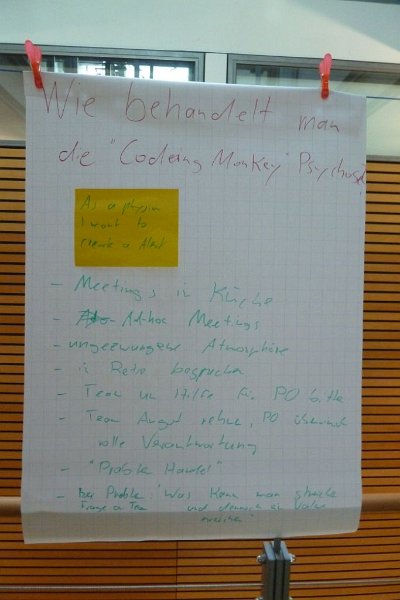 Wie behandelt man
die "Coding Monkey" Psychose
As a physician
I want to
create a Alert
- Meetings in Küche
- Ad-hoc Meetings
- ungezwungene Atmosphäre
- in Retro besprechen
- Team um Hilfe für PO bitten
- Team Angst nehmen, PO übernimmt
volle Verantwortung
- "Problem Handel"
- Bei Problem: "Was kann man streichen
Frage an Team und dennoch ein Value
erreichen"